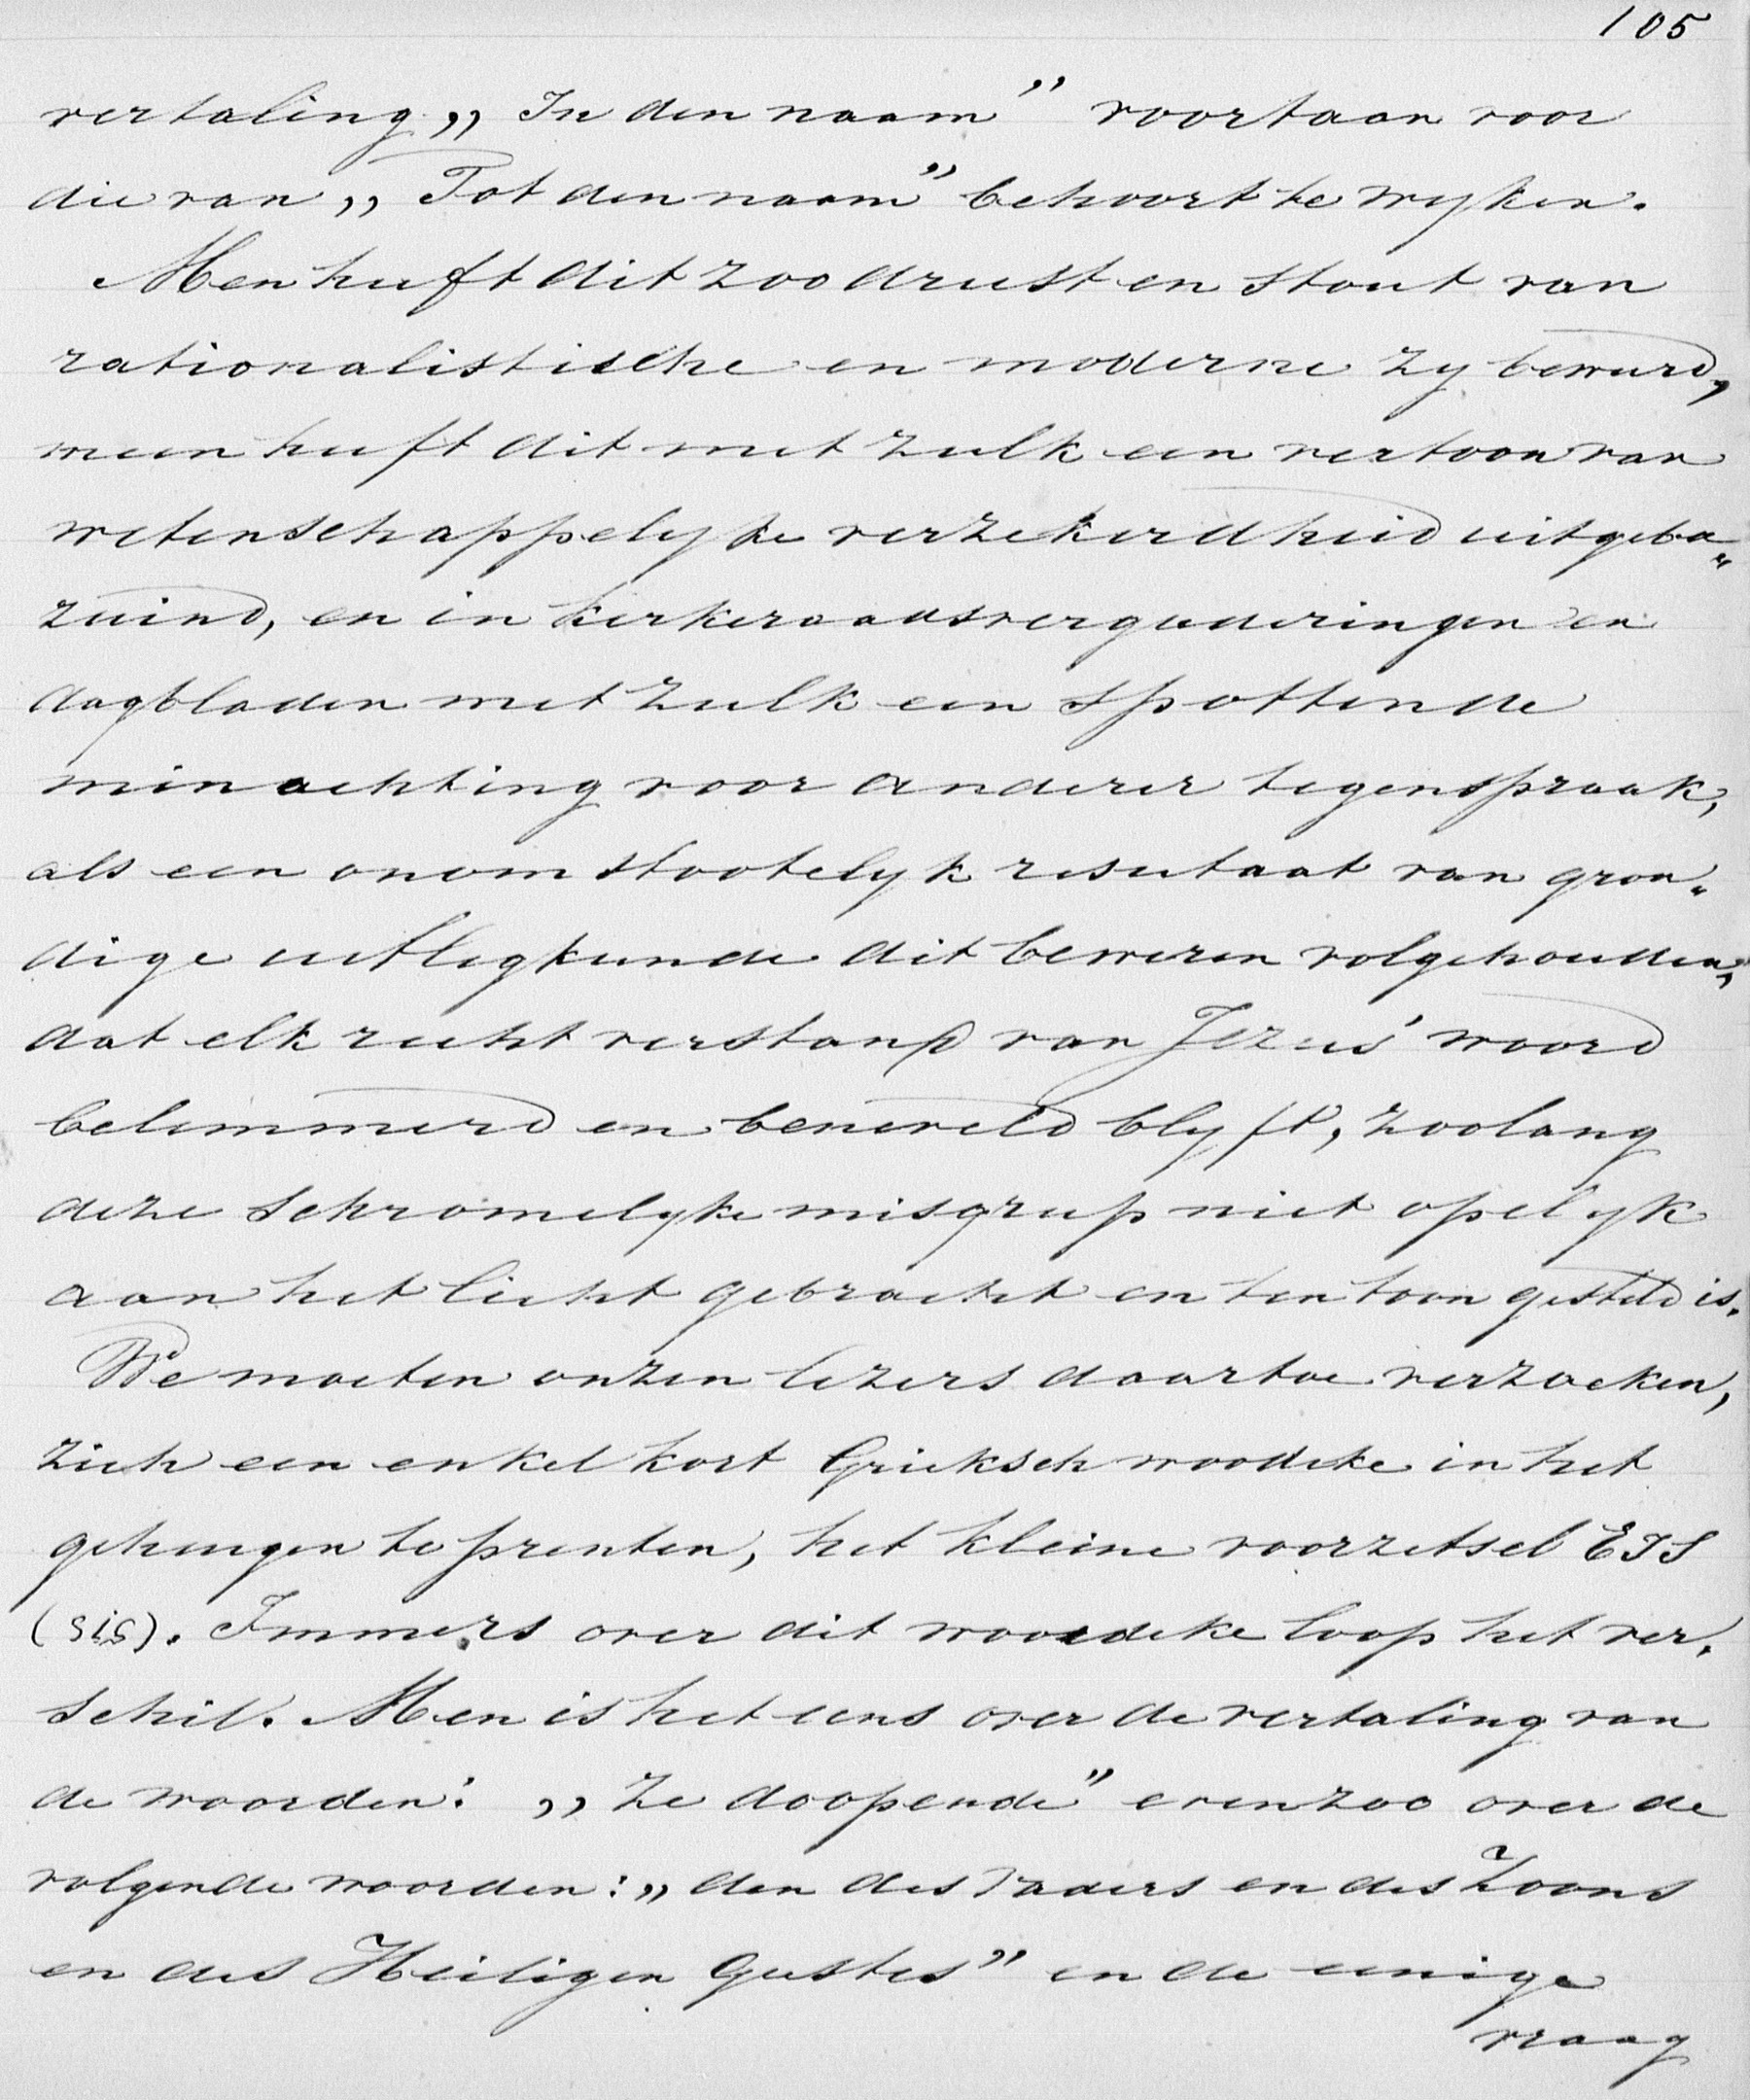 105
vertaling „In den naam” voortaan voor
die van „Tot den naam” behoort te wyken.
Men heeft dit zoo driest en stout van
rationalistische en moderne zy beweerd,
men heeft dit met zulk een vertoon van
wetenschappelyke verzekerdheid uitgeba„
zuind, en in kerkeraadsvergaderingen en
dagbladen met zulk een spottende
minachting voor anderer tegenspraak,
als een onomstootelyk resutaat van gron„
dige uitlegkunde dit beweren volgehouden,
dat elk recht verstand van Jezus' woord
belemmerd en beneveld blyft, zoolang
deze schromelyke misgreep niet opelyk
aan het licht gebracht en ten toon gesteld is.
We moeten onzen lezers daartoe verzoeken,
zich een enkel kort Grieksch woodeke in het
geheugen te prenten, het kleine voorzetsel EIS
(εἰς). Immers over dit woordeke loop het ver„
schil. Men is het eens over de vertaling van
de woorden: „Ze doopende” evenzoo over de
volgende woorden: „den des Vaders en des Zoons
en des Heiligen Geestes” en de eenige
vraag